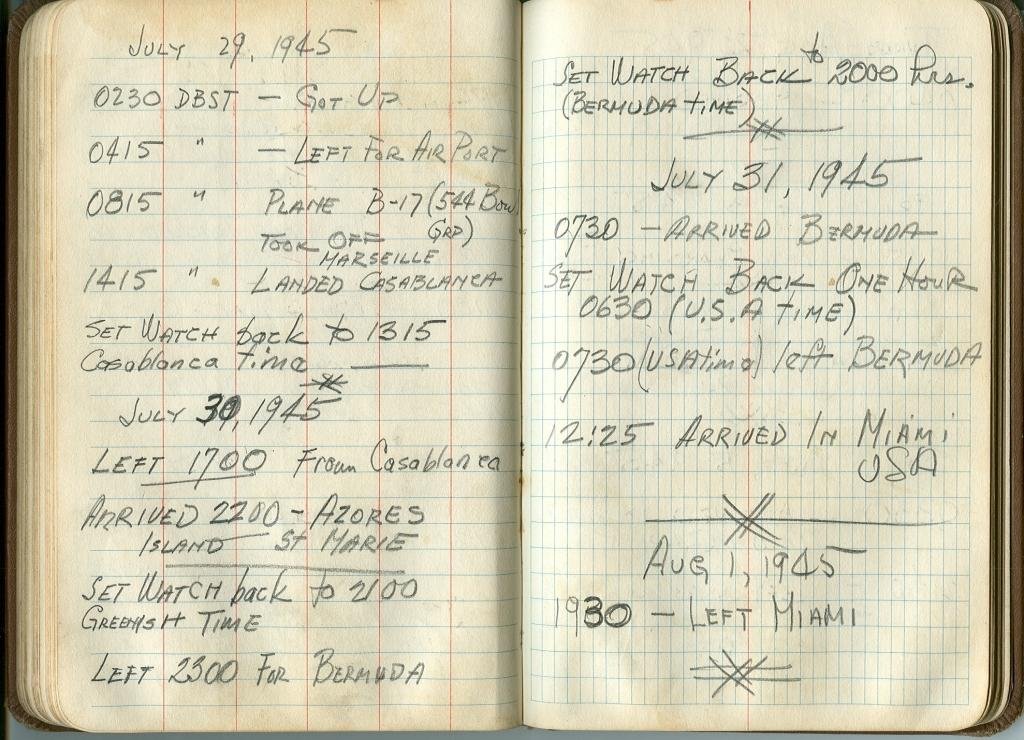 JULY 29, 1945
0230 DBST — GOT UP
0415 " — LEFT FOR AIR PORT
0815 " PLANE B-17 (544 Bow
GRP)
TOOK OFF
MARSEILLE
1415 " LANDED CASABLANCA
SET WATCH back to 1315
Casablanca time
JULY 30, 1945
LEFT 1700 From Casablanca
ARRIVED 2200 - AZORES
ISLAND ST MARIE
SET WATCH back to 2100
GREENISH TIME
LEFT 2300 FOR BERMUDA
SET WATCH BACK to 2000 hrs.
(BERMUDA TIME)
JULY 31, 1945
0730 — ARRIVED BERMUDA
SET WATCH BACK ONE HOUR
0630 (U.S.A TIME)
0730 (USA time) left BERMUDA
12:25 ARRIVED IN MIAMI
USA
AUG 1, 1945
1930 — LEFT MIAMI